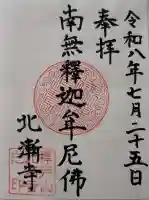 令和八年七月二十五日
奉拝
南無釋迦牟尼佛
北漸寺